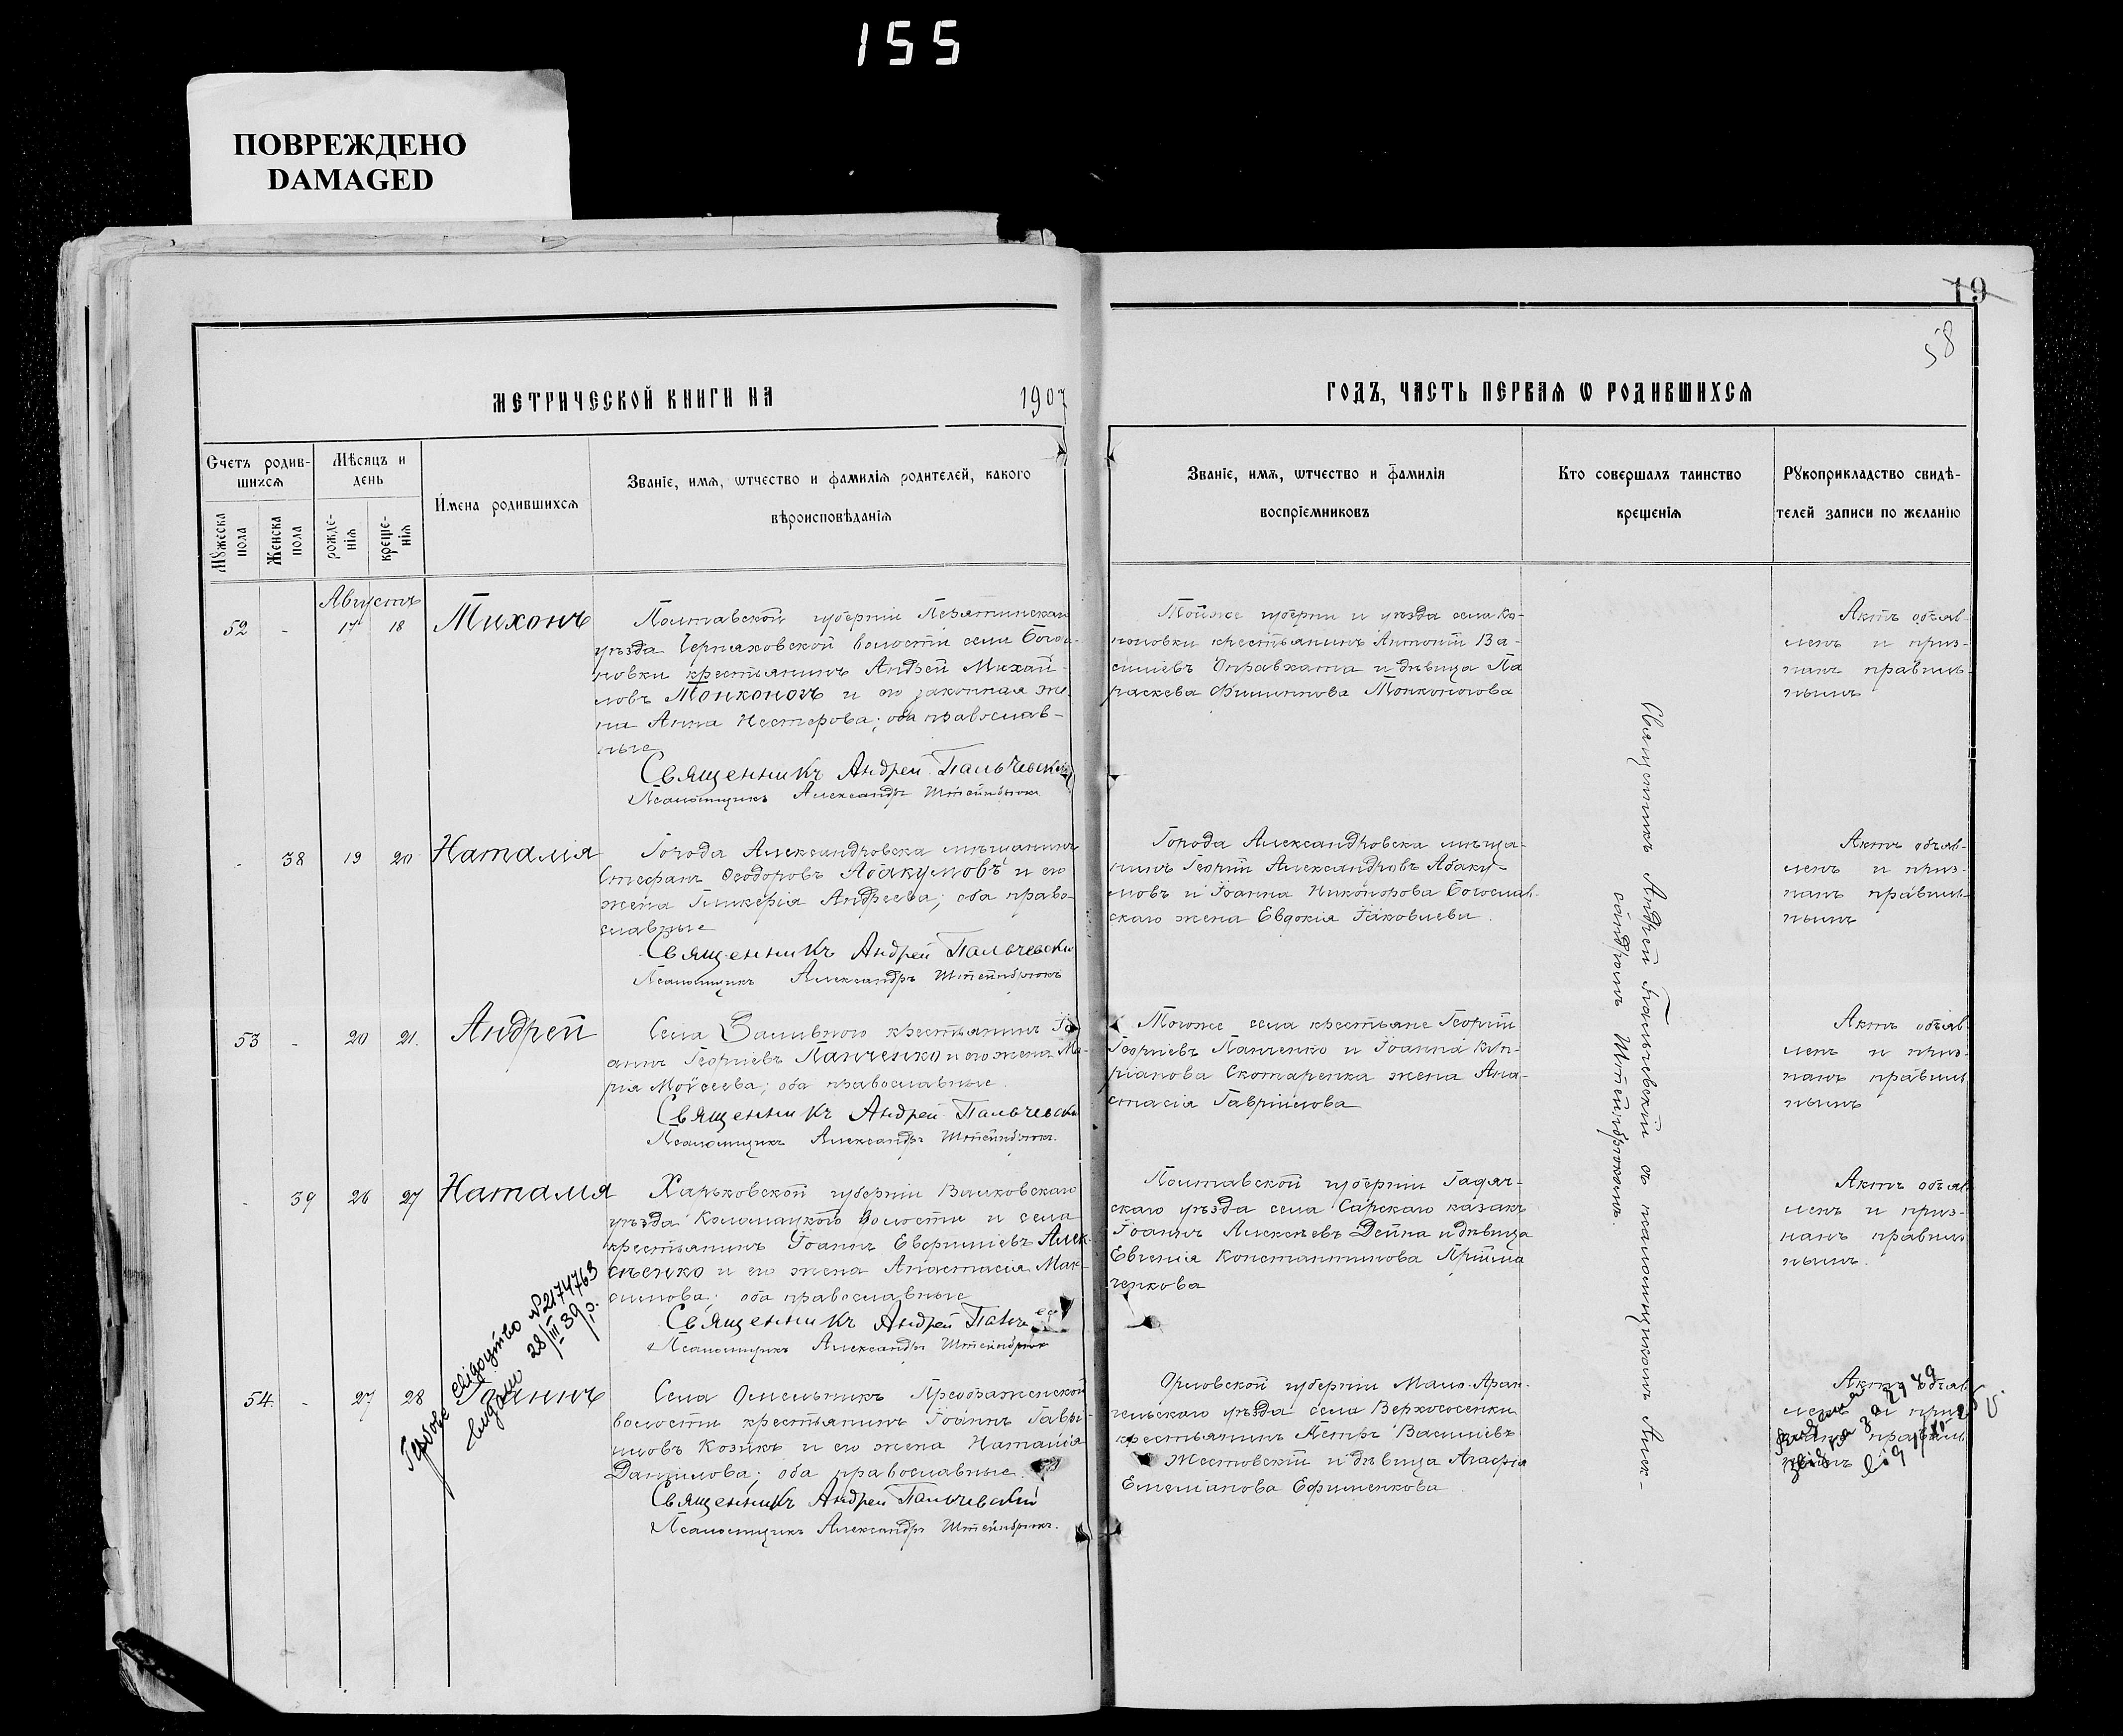 155
ПОВРЕЖДЕНО
DAMAGED
19
58
МЕТРИЧЕСКОЙ КНИГИ НА 1907 ГОДЪ, ЧАСТЬ ПЕРВАЯ Ѡ РОДИВШИХСЯ
Счетъ родив-
шихся
Мѣсяцъ и
день
Имена родившихся
Званіе, имя, ѡтчество и фамилія родителей, какого
вѣроисповѣданія
Званіе, имя, ѡтчество и фамилія
воспріемниковъ
Кто совершалъ таинство
крещенія
Рꙋкоприкладство свидѣ-
телей записи по желанію
Мꙋжеска
пола
Женска
пола
рожде-
нія
креще-
нія
Августъ
52 - 17 18 Тихонъ
Полтавской губерніи
уѣзда волости села
новки крестьянинъ Андрей Михай-
ловъ Тонконогъ и его законная же-
на Анна Нестерова; оба православ-
ные
Священникъ Андрей Пальчевскій
Псаломщикъ Александръ Штейнбрюкъ
Той же губерніи и уѣзда села
крестьянинъ Антоній Ва-
силіевъ и дѣвица Па
раскева Филиппова Тонконогова
Актъ объяв-
ленъ и приз-
нанъ правиль-
нымъ
- 38 19 20 Наталія
Города Александровска мѣщанинъ
Стефанъ Ѳеодоровъ Абакумовъ и его
жена Гликерія Андреева; оба право-
славные
Священникъ Андрей Пальчевскій
Псаломщикъ Александръ Штейнбрюкъ
Города Александровска мѣща-
нинъ Георгій Александровъ Абаку-
мовъ и Іоанна Никонорова Богослав-
скаго жена Евдокія Іаковлева.
Актъ объяв-
ленъ и приз-
нанъ правиль-
нымъ
53 - 20 21. Андрей
Села крестьянинъ Іо
аннъ Георгіевъ Панченко и его жена Ма-
рія Моѵсеева; оба православные.
Священникъ Андрей Пальчевскій
Псаломщикъ Александръ Штейнбрюкъ.
Тогоже села крестьяне Георгій
Георгіевъ Панченко и Іоанна Кип-
ріанова Скотаренка жена Ана-
стасія Гавріилова
Актъ объяв
ленъ и приз-
нанъ правиль
нымъ
- 39 26 27 Наталія
Харьковской губерніи Валковскаго
уѣзда Коломацкой волости и села
крестьянинъ Іоаннъ Алек-
сѣенко и его жена Анастасія Мак-
симова; оба православные
Священникъ Андрей
Псаломщикъ Александръ Штейнбрюкъ
Полтавской губерніи Гадяч-
скаго уѣзда села Сарскаго казакъ
Іоаннъ Алексѣевъ Дейна и дѣвица
Евгенія Константинова Прійма
ченкова
Актъ объяв
ленъ и приз-
нанъ правиль
нымъ.
Гербове свідоцтво №2174763
видано 28/III 39 р.
54. - 27 28 Іоаннъ
Села Омельникъ Преображенской
волости крестьянинъ Іоаннъ Гаврі-
иловъ Козикъ и его жена Наталія
Данилова; оба православные.
Священникъ Андрей Пальчевскій
Псаломщикъ Александръ Штейнбрюкъ.
Орловской губерніи Мало-Архан-
гельскаго уѣзда села Верхососенки
крестьянинъ Петръ Василіевъ
Жестовскій и дѣвица Агафія
Емеліанова Ефименкова
Актъ объяв
ленъ и приз
нанъ правиль
нымъ
Священникъ Андрей Пальчевскій съ псаломщикомъ Алек-
сандромъ Штейнбрюкомъ.